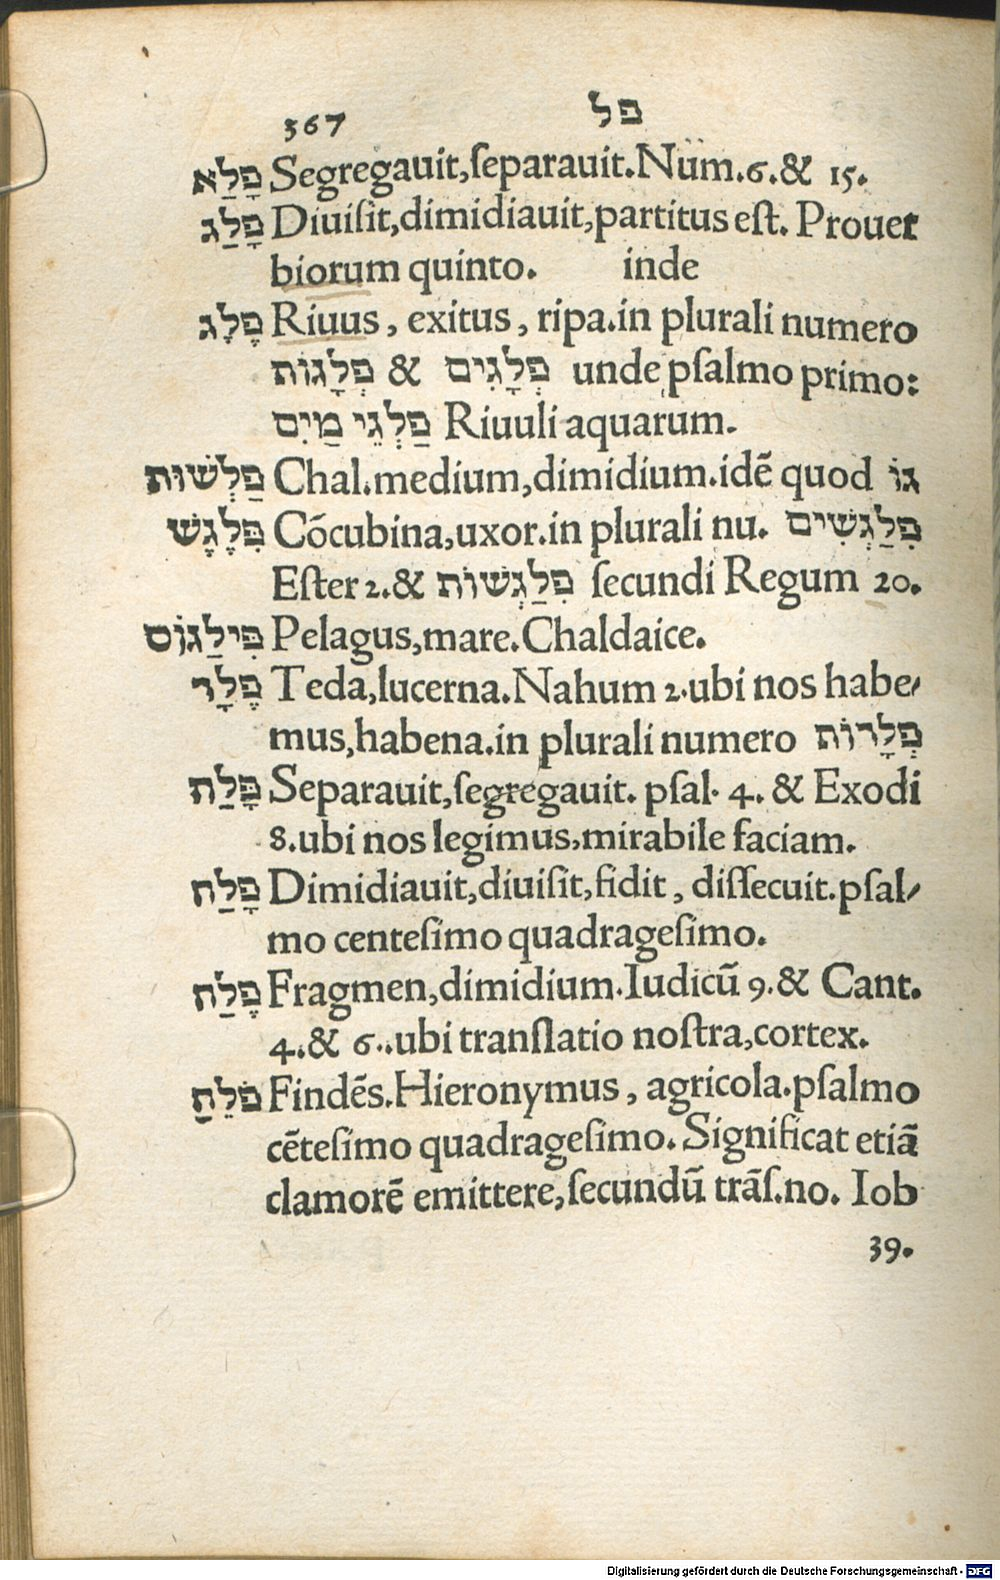 367 פל
פָלַא Segregauit,ſeparauit.Num.6.& 15.
פָלַג Diuiſit,dimidiauit,partitus eſt. Prouer
biorum quinto. inde
פֶלָג Riuus, exitus, ripa.in plurali numero
פְלָגוֹת & פְלָגִים unde pſalmo primo:
פַלְגֵי מַיִם Riuuli aquarum.
פַלְשׁוּת Chal.medium,dimidium.idē quod גוֹ
פִלֶגֶשׁ Cōcubina,uxor.in plurali nu. פִלַגְשִׁים
Eſter 2.& פִלַגְשׁוֹת ſecundi Regum 20.
פִילַגוֹס Pelagus,mare.Chaldaice.
פֶלָד Teda,lucerna.Nahum 2.ubi nos habe⸗
mus,habena.in plurali numero פְלָדוֹת
פָלַת Separauit,ſegregauit. pſal. 4. & Exodi
8.ubi nos legimus,mirabile faciam.
פָלַח Dimidiauit,diuiſit,fidit, diſſecuit.pſal⸗
mo centeſimo quadrageſimo.
פֶלַח Fragmen,dimidium.Iudicū 9.& Cant.
4.& 6..ubi tranſlatio noſtra,cortex.
פֹלֵחַ Findēs.Hieronymus, agricola.pſalmo
cēteſimo quadrageſimo. Significat etiā
clamorē emittere,ſecundū trāſ.no. Iob
39.
Digitalisierung gefördert durch die Deutsche Forschungsgemeinschaft - DFG